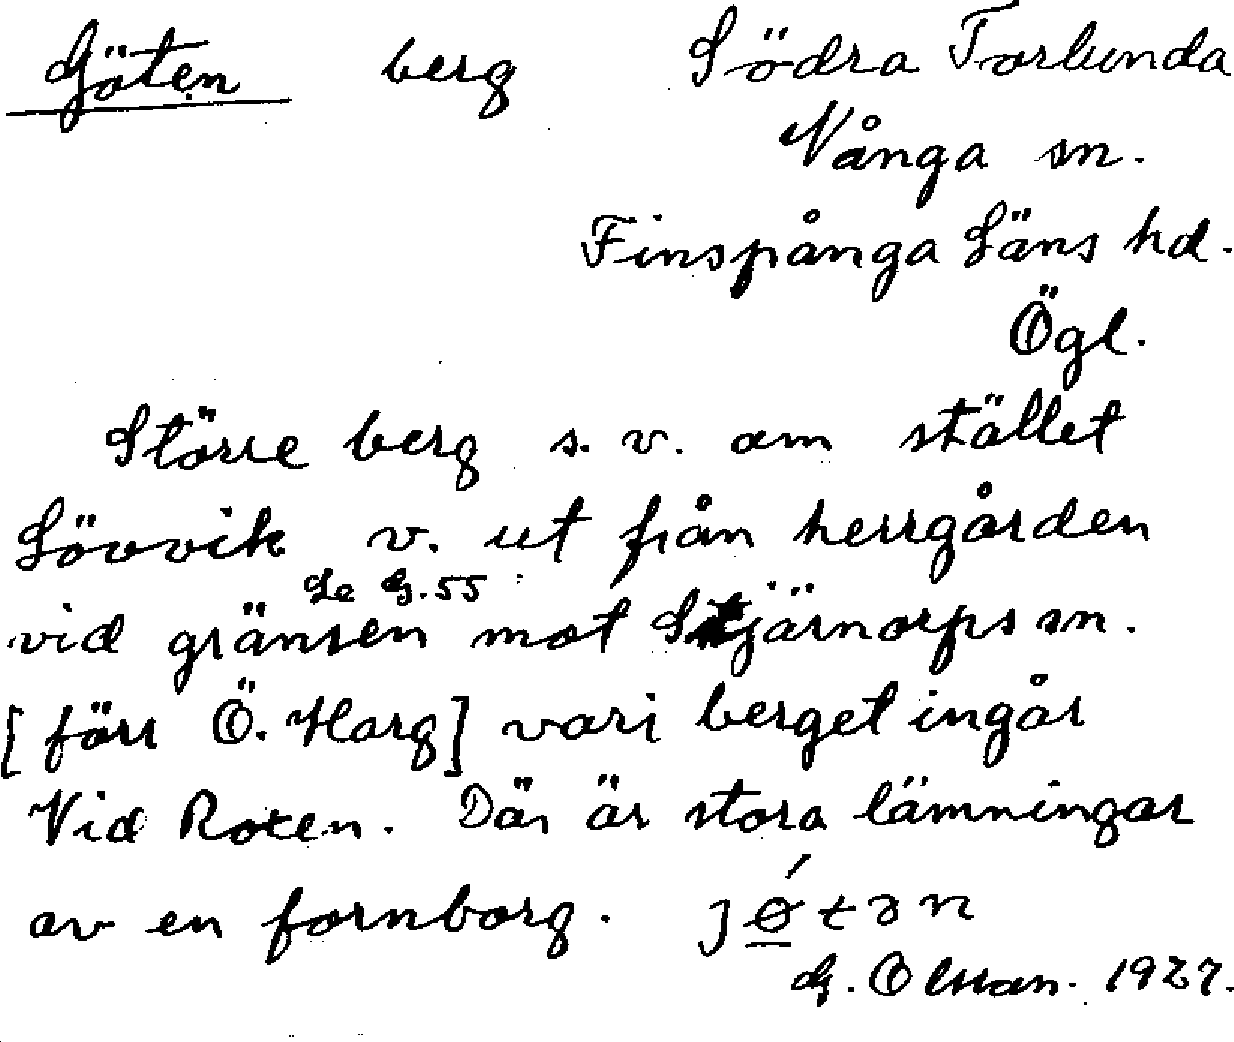 Göten berg Södra Torlunda
Vånga sn.
Finspånga Läns hd.
Ögl.
Större berg s.v. om stället
Lövvik v. ut från herrgården
Se G.55
vid gränsen mot Stjärnorps sn.
[förr Ö. Harg] vari berget ingår
Vid Roxen. Där är stora lämningar
av en fornborg. jǿtən
G. Olsson. 1927.